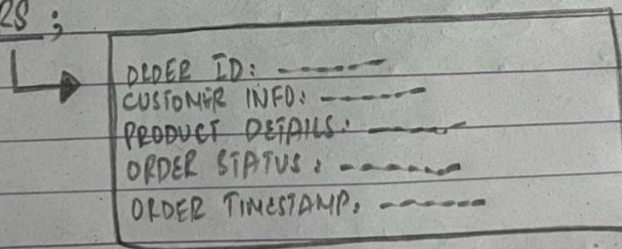 RS ;
ORDER ID: ------
CUSTOMER INFO: ------
PRODUCT DETAILS: ------
ORDER STATUS: ------
ORDER TIMESTAMP: ------